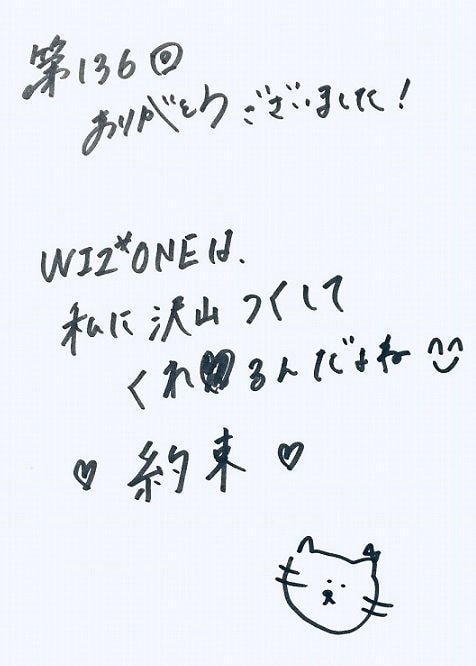 第136回
ありがとうございました!
WIZ*ONEは、
私に沢山つくして
くれるんだよね
約束